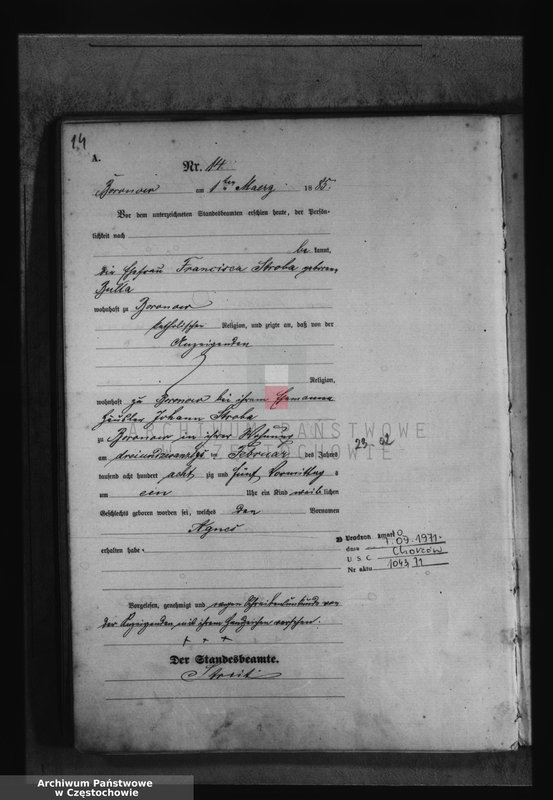 14
A.
Nr. 14
Boronow am 1ten Maerz 1885.
Vor dem unterzeichneten Standesbeamten erschien heute, der Persön-
lichkeit nach
be kannt,
die Ehefrau Francisca Stroba geborene
Bulla
wohnhaft zu Boronow
katholischer Religion, und zeigte an, daß von der
Anzeigenden
Religion,
wohnhaft zu Boronow bei ihrem Ehemanne
Häusler Johann Stroba
zu Boronow in ihrer Wohnung
am dreiundzwanzigsten Februar des Jahres
23 02
tausend acht hundert acht zig und fünf Vormittag s
um ein Uhr ein Kind weib lichen
Geschlechts geboren worden sei, welches den Vornamen
Agnes
erhalten habe.
zmarł
dnia 1.09.1971.
U S C Chorzów
Nr aktu 1043/71
Vorgelesen, genehmigt und wegen Schreibensunkunde von
der Anzeigenden mit ihrem Handzeichen versehen.
+ + +
Der Standesbeamte.
ARCHIWUM PAŃSTWOWE
W CZĘSTOCHOWIE
Archiwum Państwowe
w Częstochowie